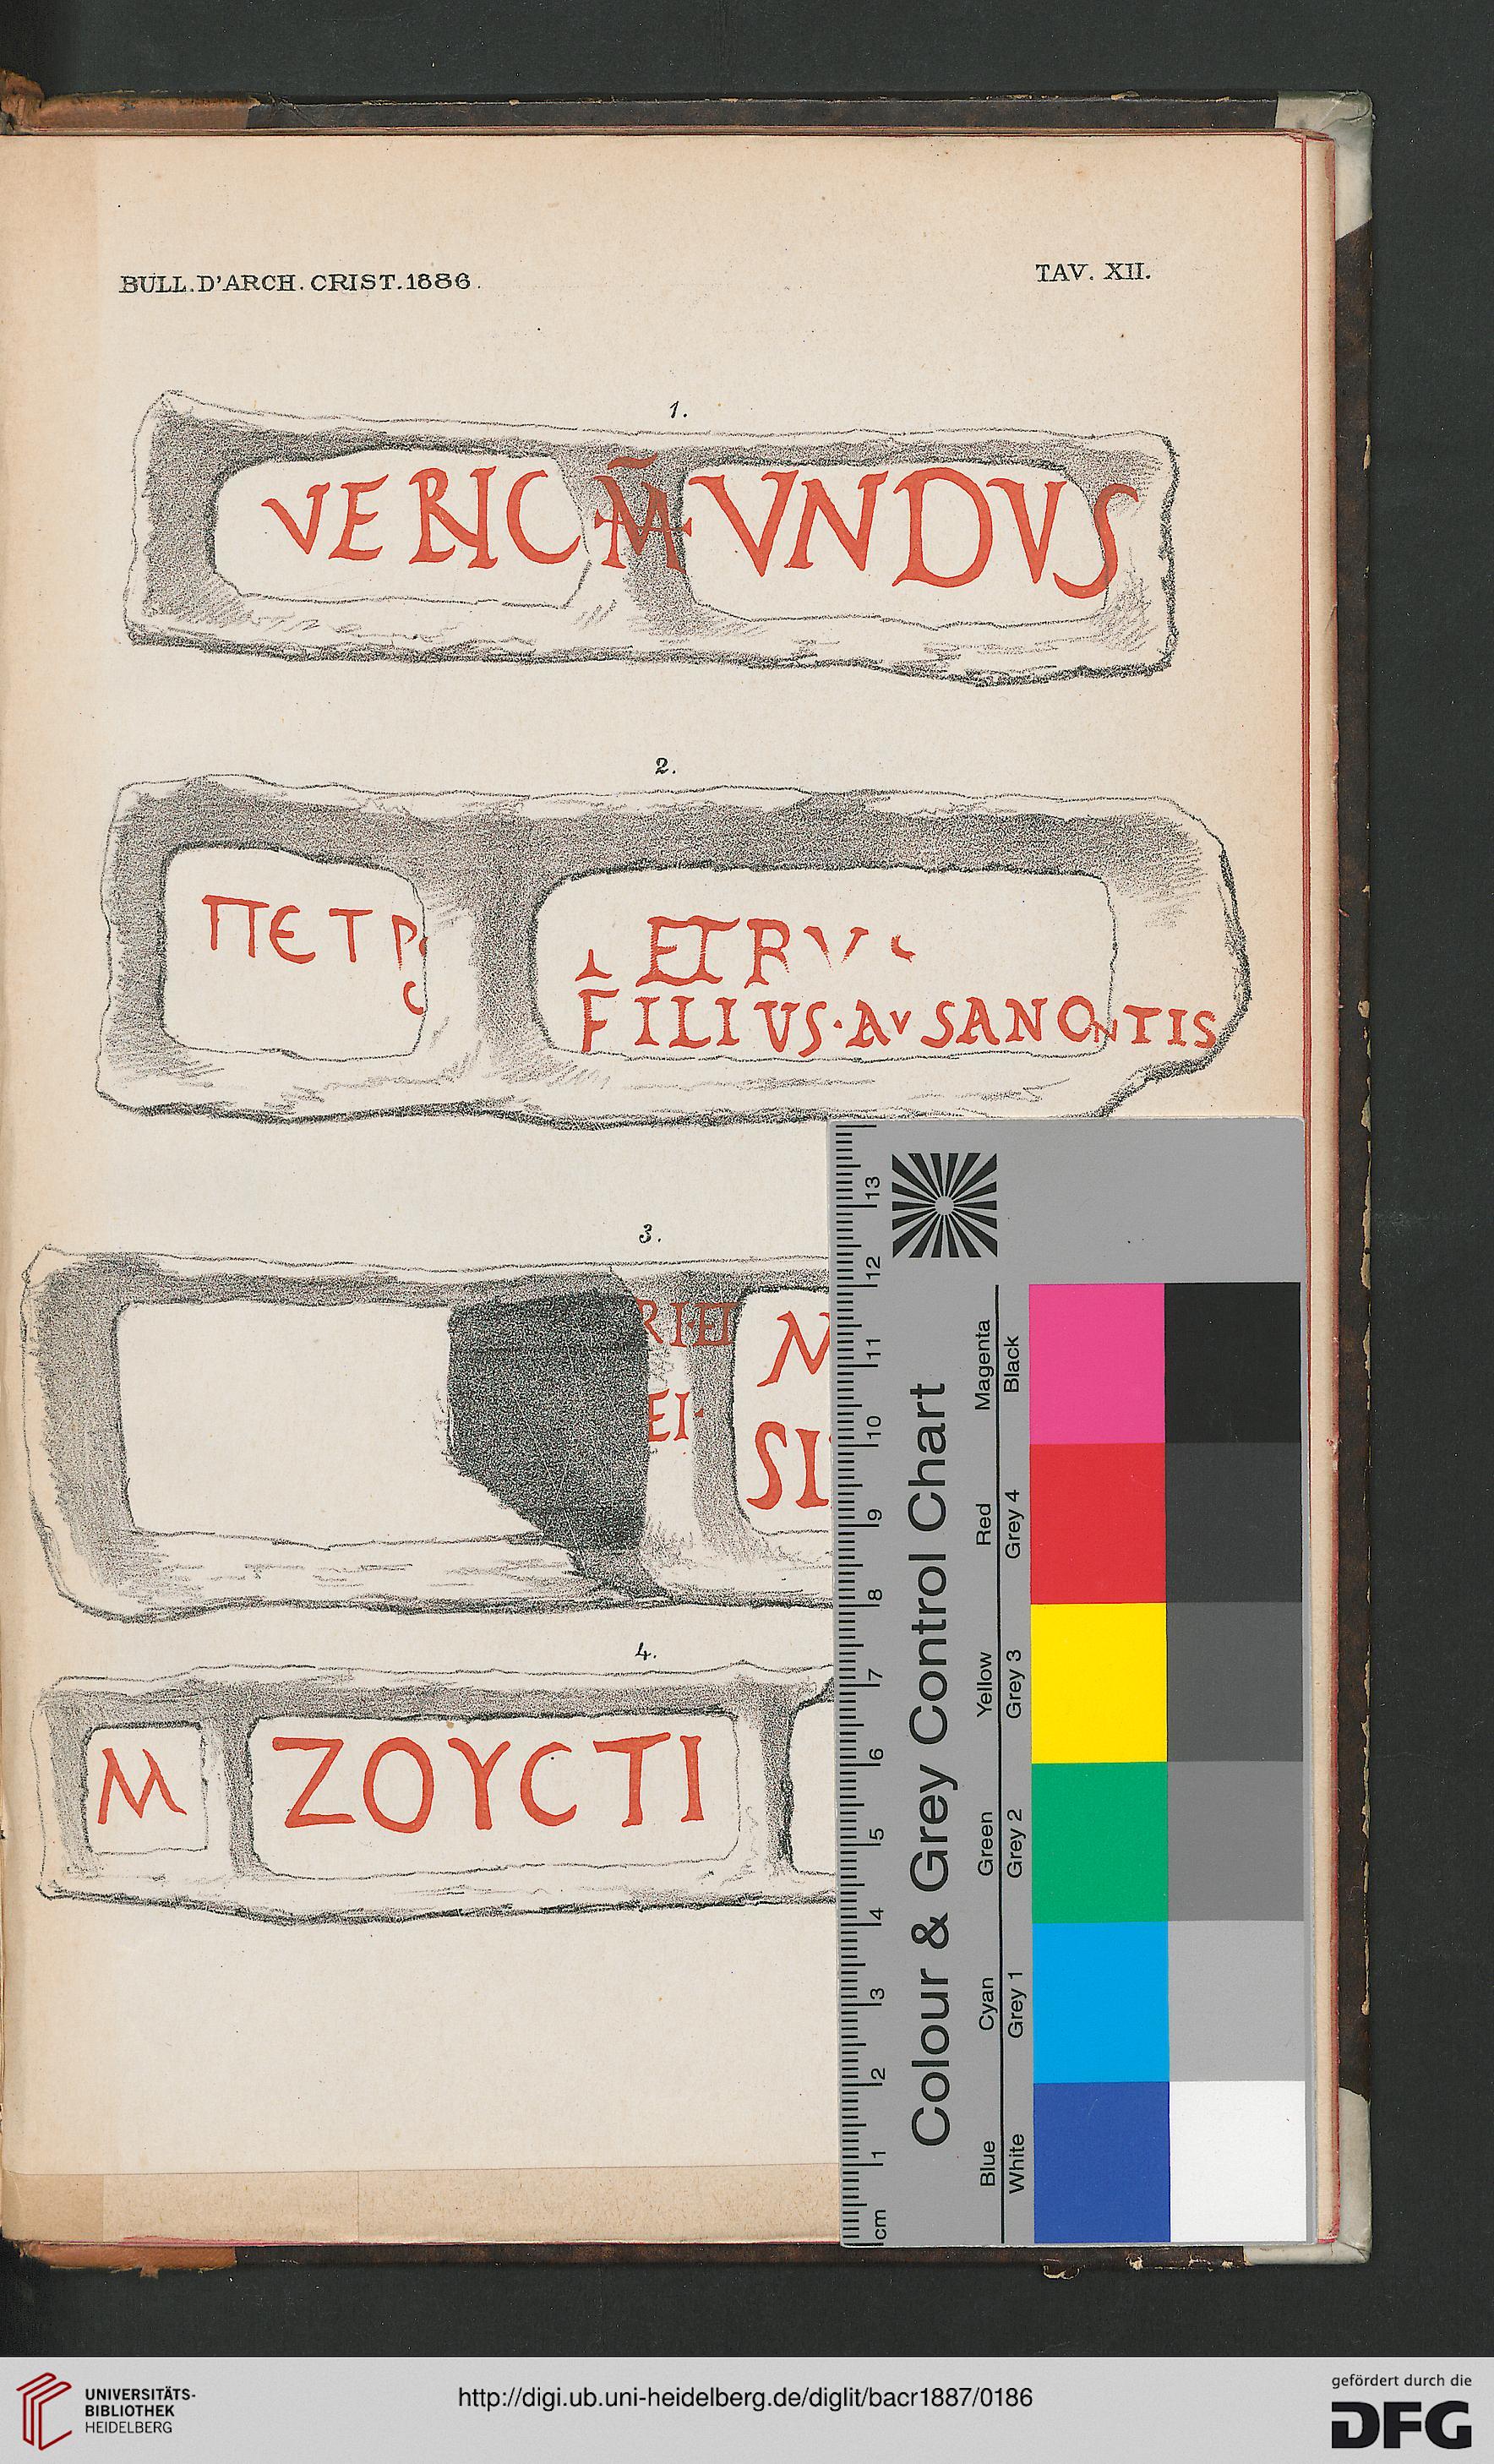 BULL.D'ARCH.CRIST.1886.
TAV. XII.
1.
VERIC M̄VNDVS
2.
ΠΕΤΡ
ETRV
FILIVS·AVSANONTIS
3.
RI·ET
EI·
SI
4.
M ZOYCTI
Colour & Grey Control Chart
Magenta
Black
Red
Grey 4
Yellow
Grey 3
Green
Grey 2
Cyan
Grey 1
Blue
White
13
12
11
10
9
8
7
6
5
4
3
2
1
cm
UNIVERSITÄTS-
BIBLIOTHEK
HEIDELBERG
http://digi.ub.uni-heidelberg.de/diglit/bacr1887/0186
gefördert durch die
DFG